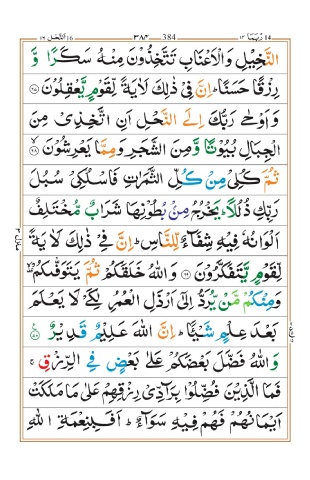 النحل ١٦ ٣٨٤ 384 ربما ١٤
النَّخِيْلِ وَالْاَعْنَابِ تَتَّخِذُوْنَ مِنْهُ سَكَرًا وَّ
رِزْقًا حَسَنًا ؕ اِنَّ فِىْ ذٰلِكَ لَاٰيَةً لِّقَوْمٍ يَّعْقِلُوْنَ
وَاَوْحٰى رَبُّكَ اِلَى النَّحْلِ اَنِ اتَّخِذِىْ مِنَ
الْجِبَالِ بُيُوْتًا وَّمِنَ الشَّجَرِ وَمِمَّا يَعْرِشُوْنَ
ثُمَّ كُلِىْ مِنْ كُلِّ الثَّمَرٰتِ فَاسْلُكِىْ سُبُلَ
رَبِّكِ ذُلُلًا ؕ يَخْرُجُ مِنْۢ بُطُوْنِهَا شَرَابٌ مُّخْتَلِفٌ
اَلْوَانُهٗ فِيْهِ شِفَآءٌ لِّلنَّاسِ ؕ اِنَّ فِىْ ذٰلِكَ لَاٰيَةً
لِّقَوْمٍ يَّتَفَكَّرُوْنَ ۞ وَاللّٰهُ خَلَقَكُمْ ثُمَّ يَتَوَفّٰٮكُمْ
وَمِنْكُمْ مَّنْ يُّرَدُّ اِلٰٓى اَرْذَلِ الْعُمُرِ لِكَىْ لَا يَعْلَمَ
بَعْدَ عِلْمٍ شَيْئًا ؕ اِنَّ اللّٰهَ عَلِيْمٌ قَدِيْرٌ
وَاللّٰهُ فَضَّلَ بَعْضَكُمْ عَلٰى بَعْضٍ فِى الرِّزْقِ ۚ
فَمَا الَّذِيْنَ فُضِّلُوْا بِرَآدِّىْ رِزْقِهِمْ عَلٰى مَا مَلَكَتْ
اَيْمَانُهُمْ فَهُمْ فِيْهِ سَوَآءٌ ؕ اَفَبِنِعْمَةِ اللّٰهِ